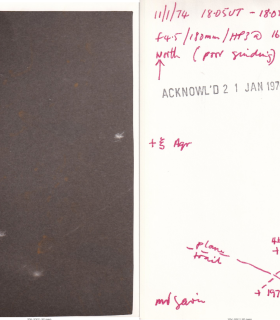 11/1/74 18.05UT - 18.0
f4.5/180mm/HPS@ 16
North (poor guiding)
ACKNOWL'D 2 1 JAN 197
+ ξ Aqr
plane
trail
+
+ 197
md gavin